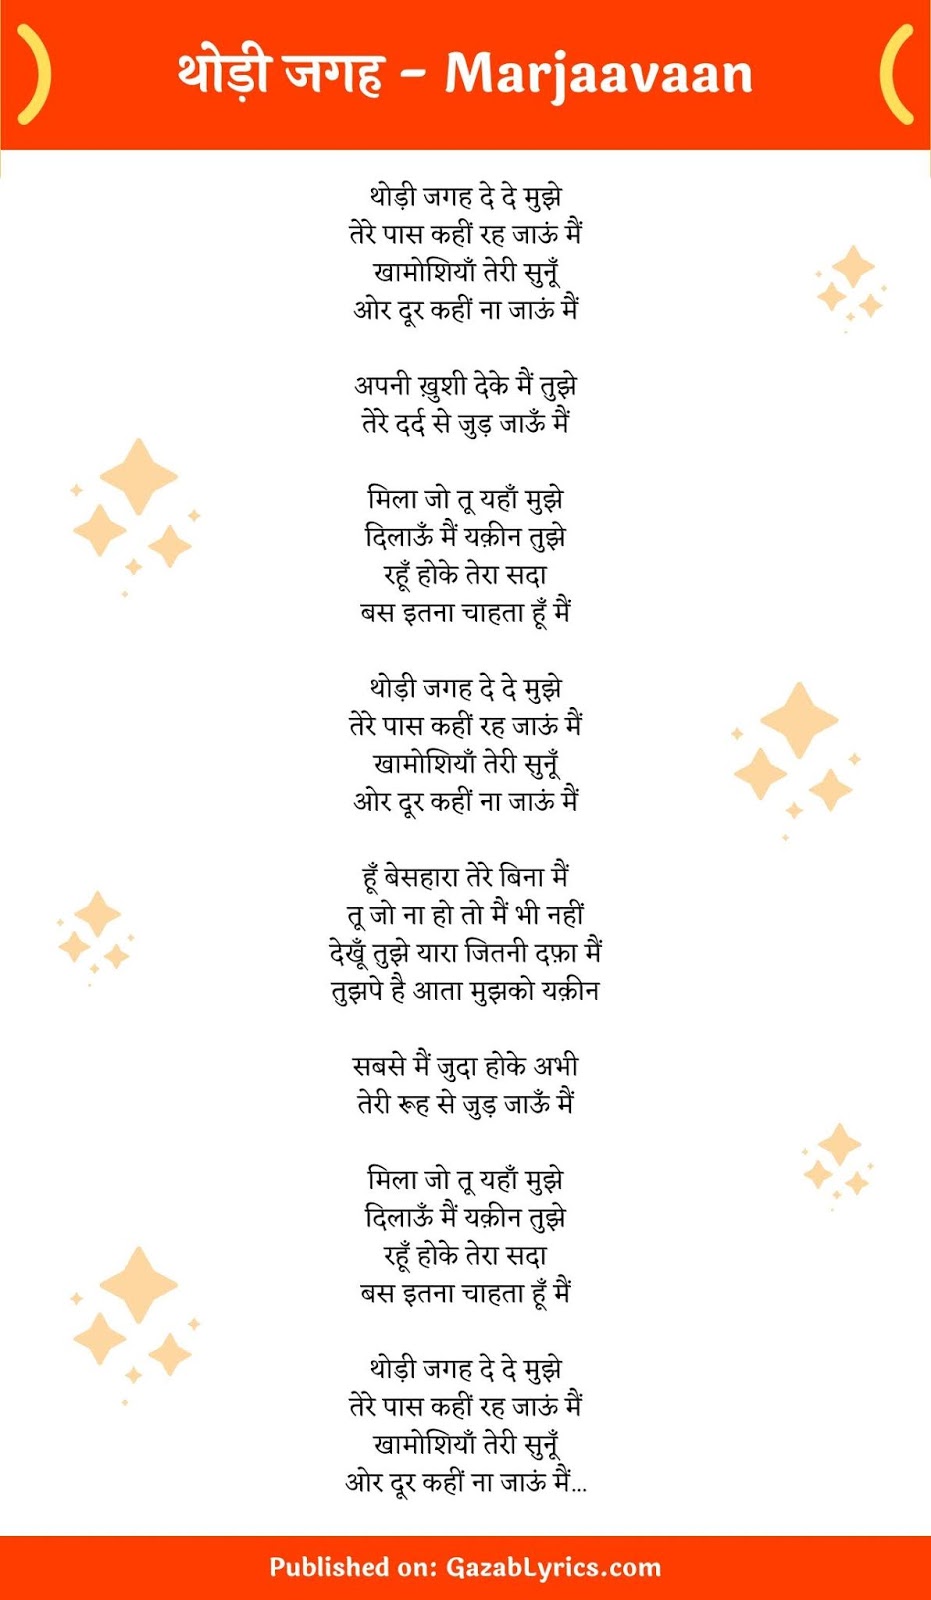 थोड़ी जगह - Marjaavaan
थोड़ी जगह दे दे मुझे
तेरे पास कहीं रह जाऊं मैं
खामोशियाँ तेरी सुनूँ
ओर दूर कहीं ना जाऊं मैं
अपनी ख़ुशी देके मैं तुझे
तेरे दर्द से जुड़ जाऊँ मैं
मिला जो तू यहाँ मुझे
दिलाऊँ मैं यक़ीन तुझे
रहूँ होके तेरा सदा
बस इतना चाहता हूँ मैं
थोड़ी जगह दे दे मुझे
तेरे पास कहीं रह जाऊं मैं
खामोशियाँ तेरी सुनूँ
ओर दूर कहीं ना जाऊं मैं
हूँ बेसहारा तेरे बिना मैं
तू जो ना हो तो मैं भी नहीं
देखूँ तुझे यारा जितनी दफ़ा मैं
तुझपे है आता मुझको यक़ीन
सबसे मैं जुदा होके अभी
तेरी रूह से जुड़ जाऊँ मैं
मिला जो तू यहाँ मुझे
दिलाऊँ मैं यक़ीन तुझे
रहूँ होके तेरा सदा
बस इतना चाहता हूँ मैं
थोड़ी जगह दे दे मुझे
तेरे पास कहीं रह जाऊं मैं
खामोशियाँ तेरी सुनूँ
ओर दूर कहीं ना जाऊं मैं...
Published on: GazabLyrics.com